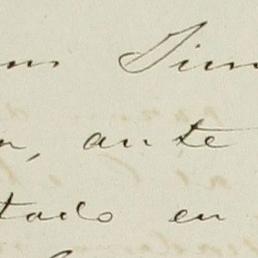 m Sim
n, ante
tado en